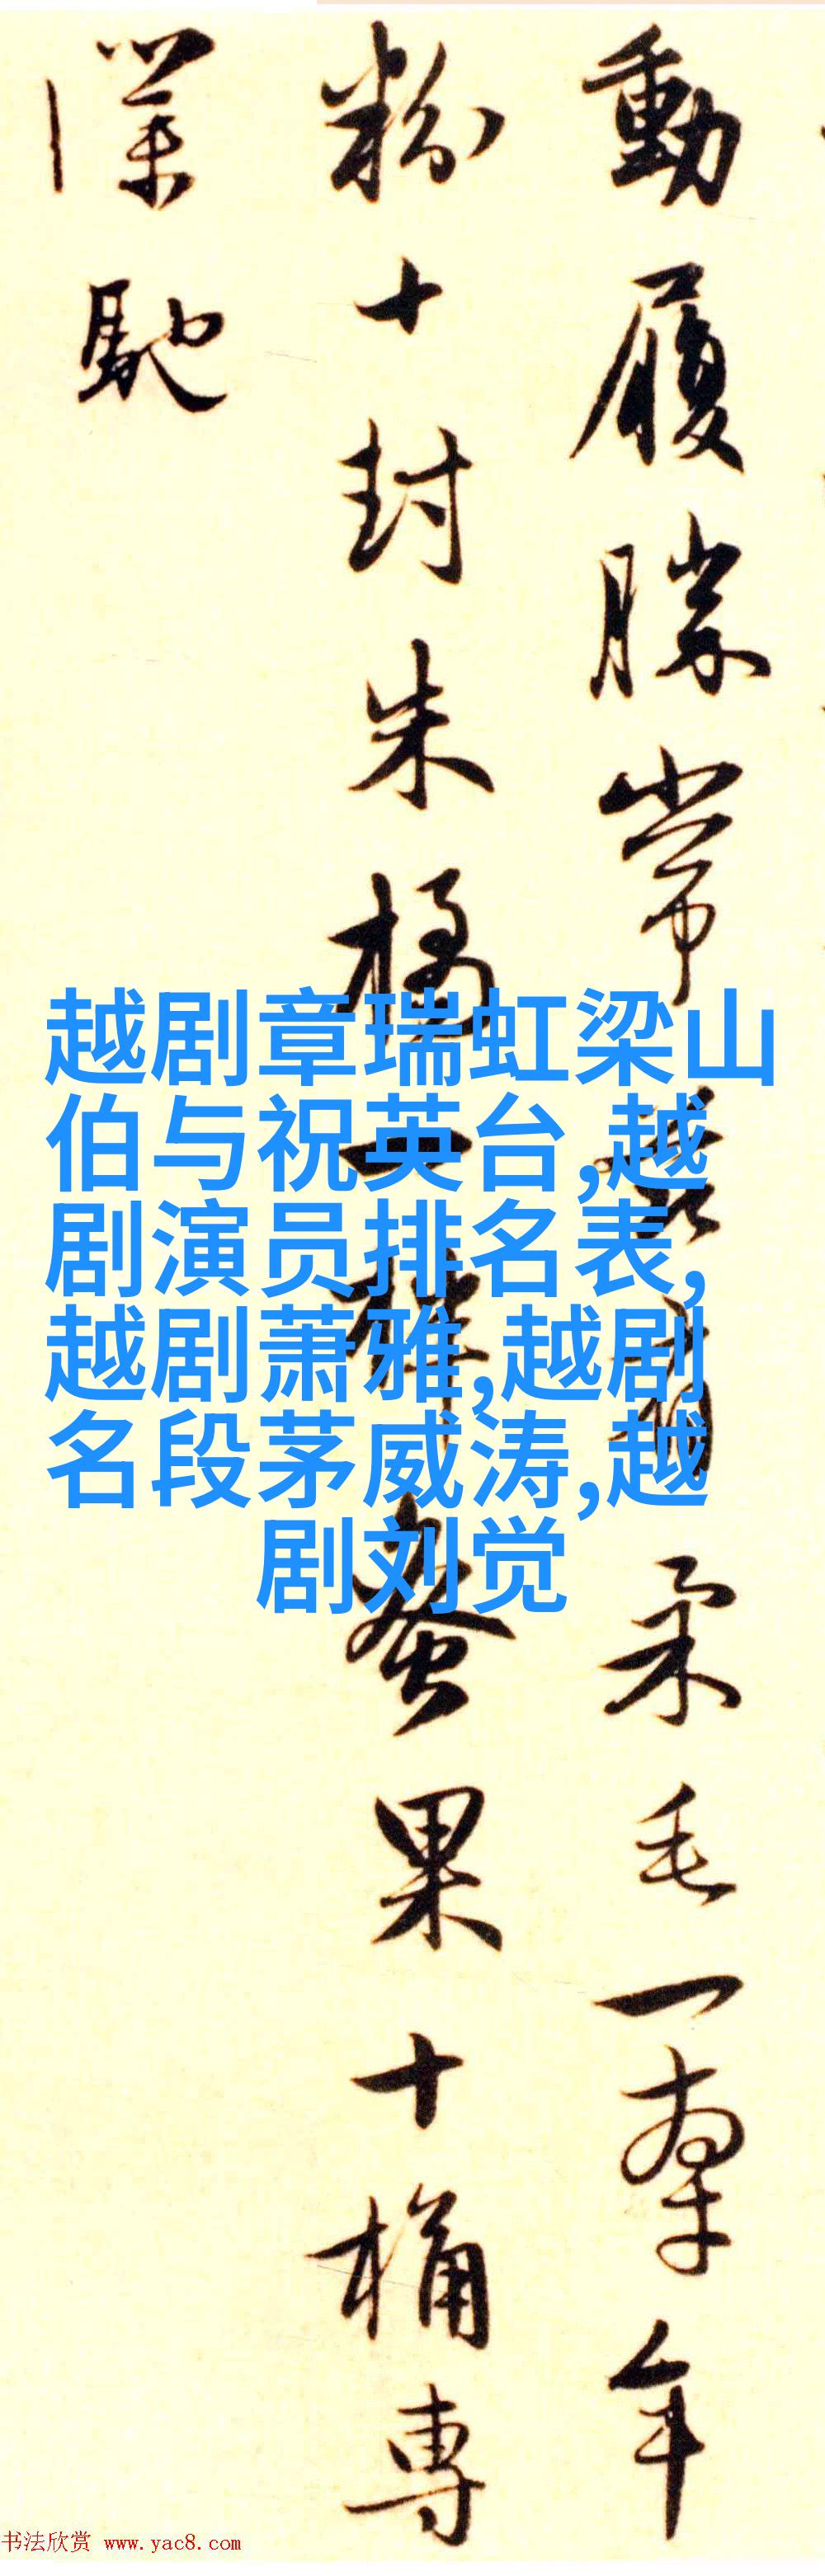 動履勝常
柔毛一羣年
粉十封朱橘
果十桶專
馳
越剧章瑞虹梁山
伯与祝英台,越
剧演员排名表,
越剧萧雅,越剧
名段茅威涛,越
剧刘觉
书法欣赏 www.yac8.com